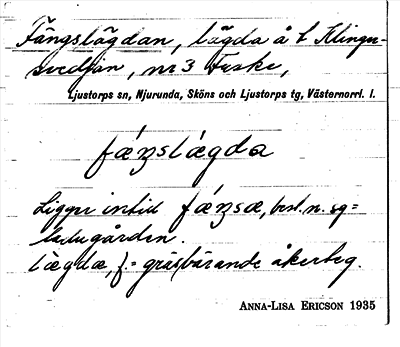 Fängslägdan, lägda å t. Klingu-
svedjan, nr 3 Fuske,
Ljustorps sn, Njurunda, Sköns och Ljustorps tg, Västernorrl. l.
fæ´ŋslægda
Ligger intid fæ´ŋsæ, best. n. sg =
ladugården.
lægdæ, f. = gräsbärande åkerteg.
ANNA-LISA ERICSON 1935